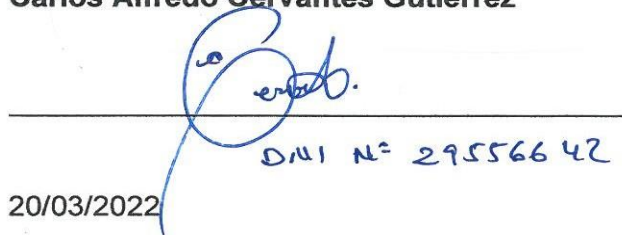 Carlos Alfredo Cervantes Gutierrez
DNI Nº 29556642
20/03/2022